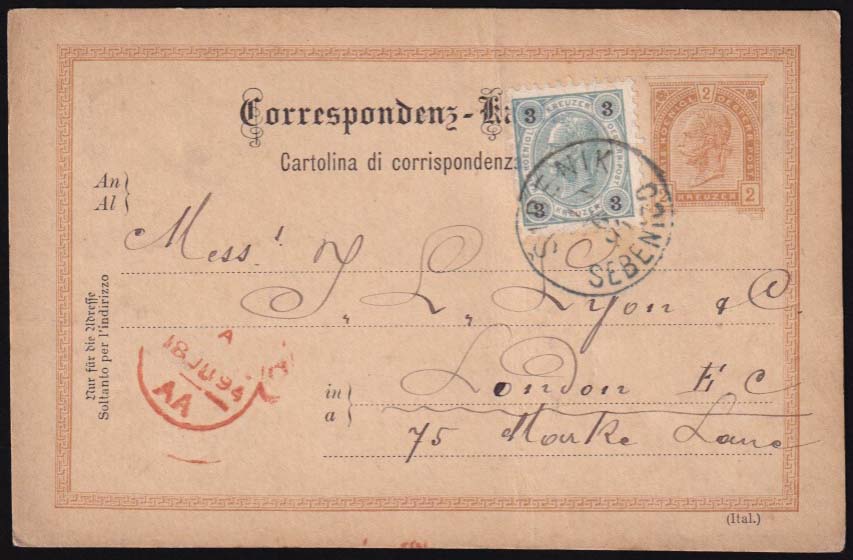 Correspondenz-K
Cartolina di corrispondenz
3 KREUZER 3
3 KREUZER 3
2
KREUZER 2
ŠIBENIK
SEBENICO
An
Al
Mess.
J. L. Lyon & C.
in
a
London E C
75 Marke Lane
Nur für die Adresse
Soltanto per l'indirizzo
A
18 JU 94
AA
(Ital.)